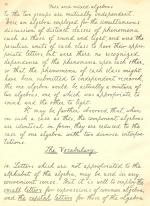 Pure and mixed algebras
to the two groups are mutually independent.
Were an algebra employed for the simultaneous
discussion of distinct classes of phenomena
such as those of sound and light and were the
peculiar units of each class to have their appro-
priate letters, but were there no recognised
dependence of the phenomena upon each other,
so that the phenomena of each class might
have been submitted to independent research,
the one algebra would be actually a mixture of
two algebras, one of which was appropriate to
sound and the other to light.
It may be further observed that when
in such a case as this, the component algebras
are identical in form they are reduced to the
case of one algebra with two diverse interpre-
tations.
The Vocabulary
Letters which are not appropriated to the
alphabet of the algebra, may be used in any
convenient sense. But it is well to employ the
small letters for expressions of common algebra,
and the capital letters for those of the algebra